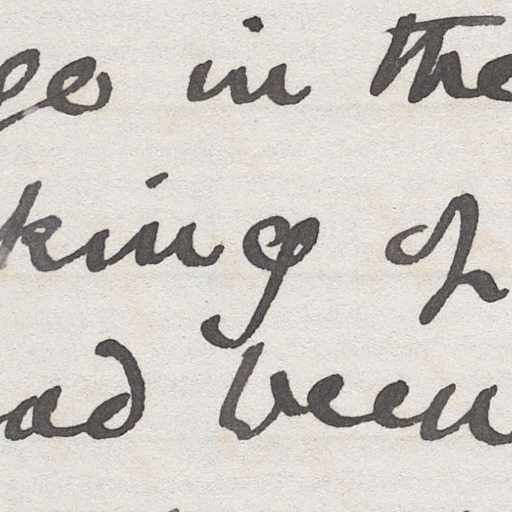 ge in the
king of
ad been